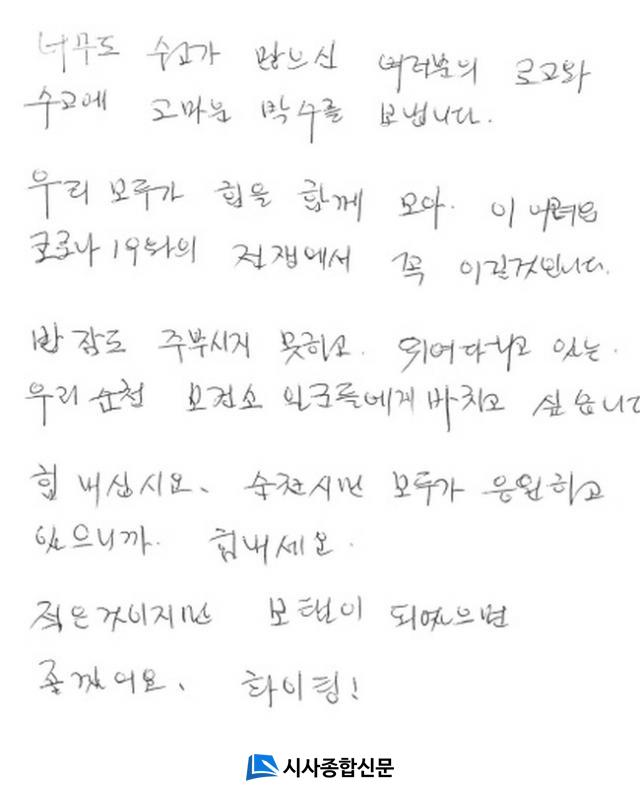 너무도 수고가 많으신 여러분의 로고와
수고에 고마운 박수를 보냅니다.
우리 모두가 힘을 함께 모아. 이 어려운
코로나 19와의 전쟁에서 꼭 이길것입니다.
밤잠도 주무시지 못하고. 뛰여다니고 있는.
우리 순천 보건소 일군들에게 바치고 싶습니다
힘 내십시요. 순천시민 모두가 응원하고
있으니까. 힘내세요.
적은것이지만 보탬이 되였으면
좋겠어요. 화이팅!
시사종합신문